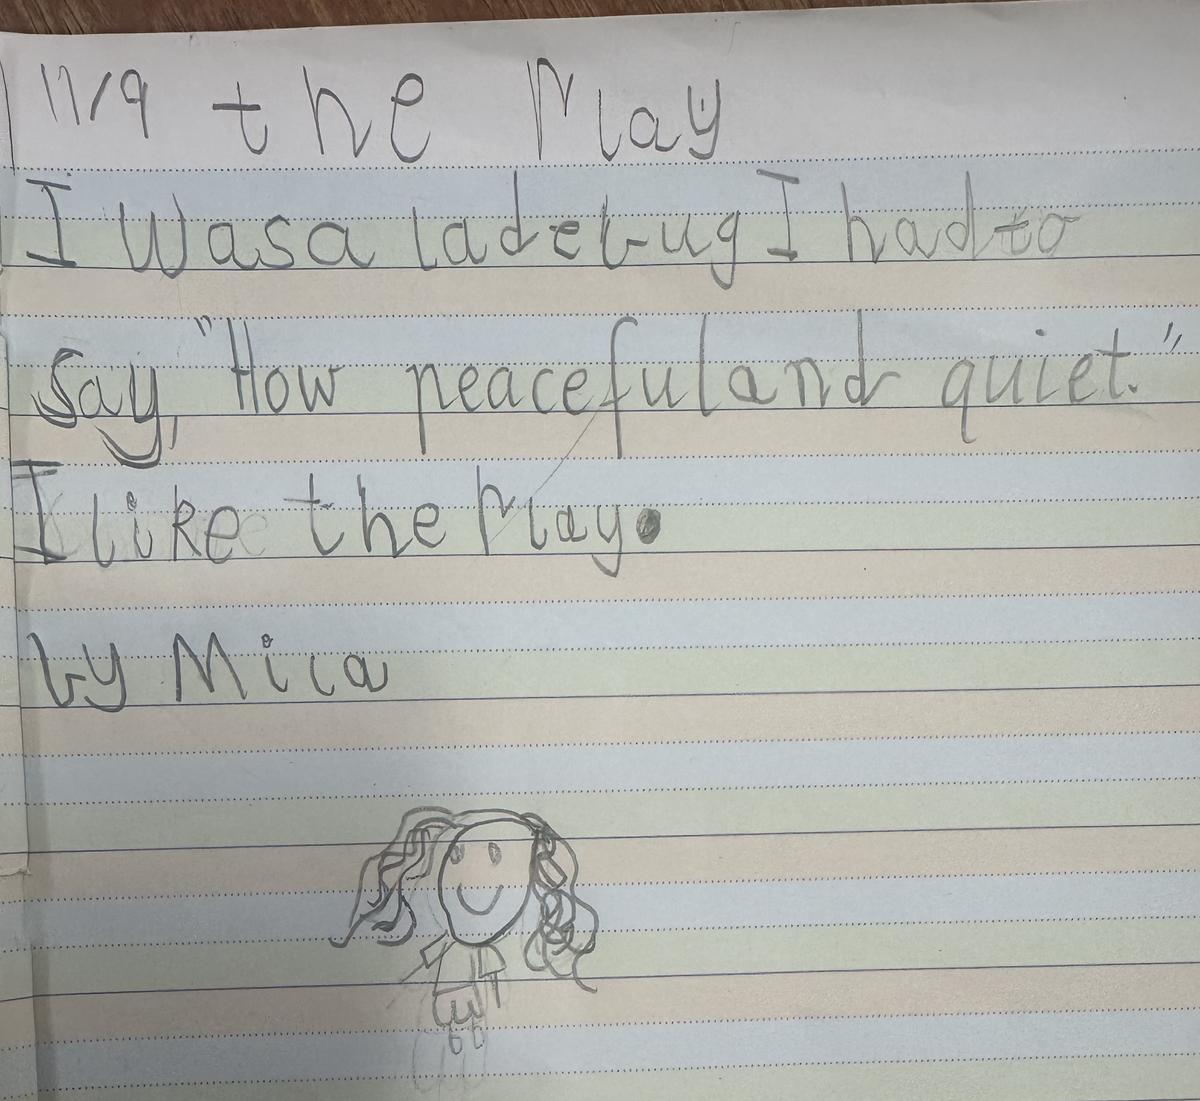 11/9 the Play
I was a ladebug I had to
say, "How peaceful and quiet."
I like the Play.
by Mica